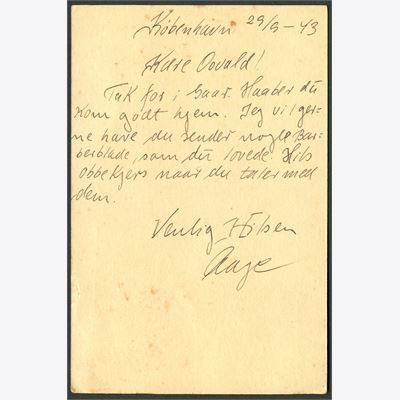 København 29/9-43
Kære Osvald!
Tak for i Gaar. Haaber du
kom godt hjem. Jeg vil ger-
ne have du sender nogle Bar-
berblade, som du lovede. Hils
Obbekjærs naar du taler med
dem.
Venlig Hilsen
Aage